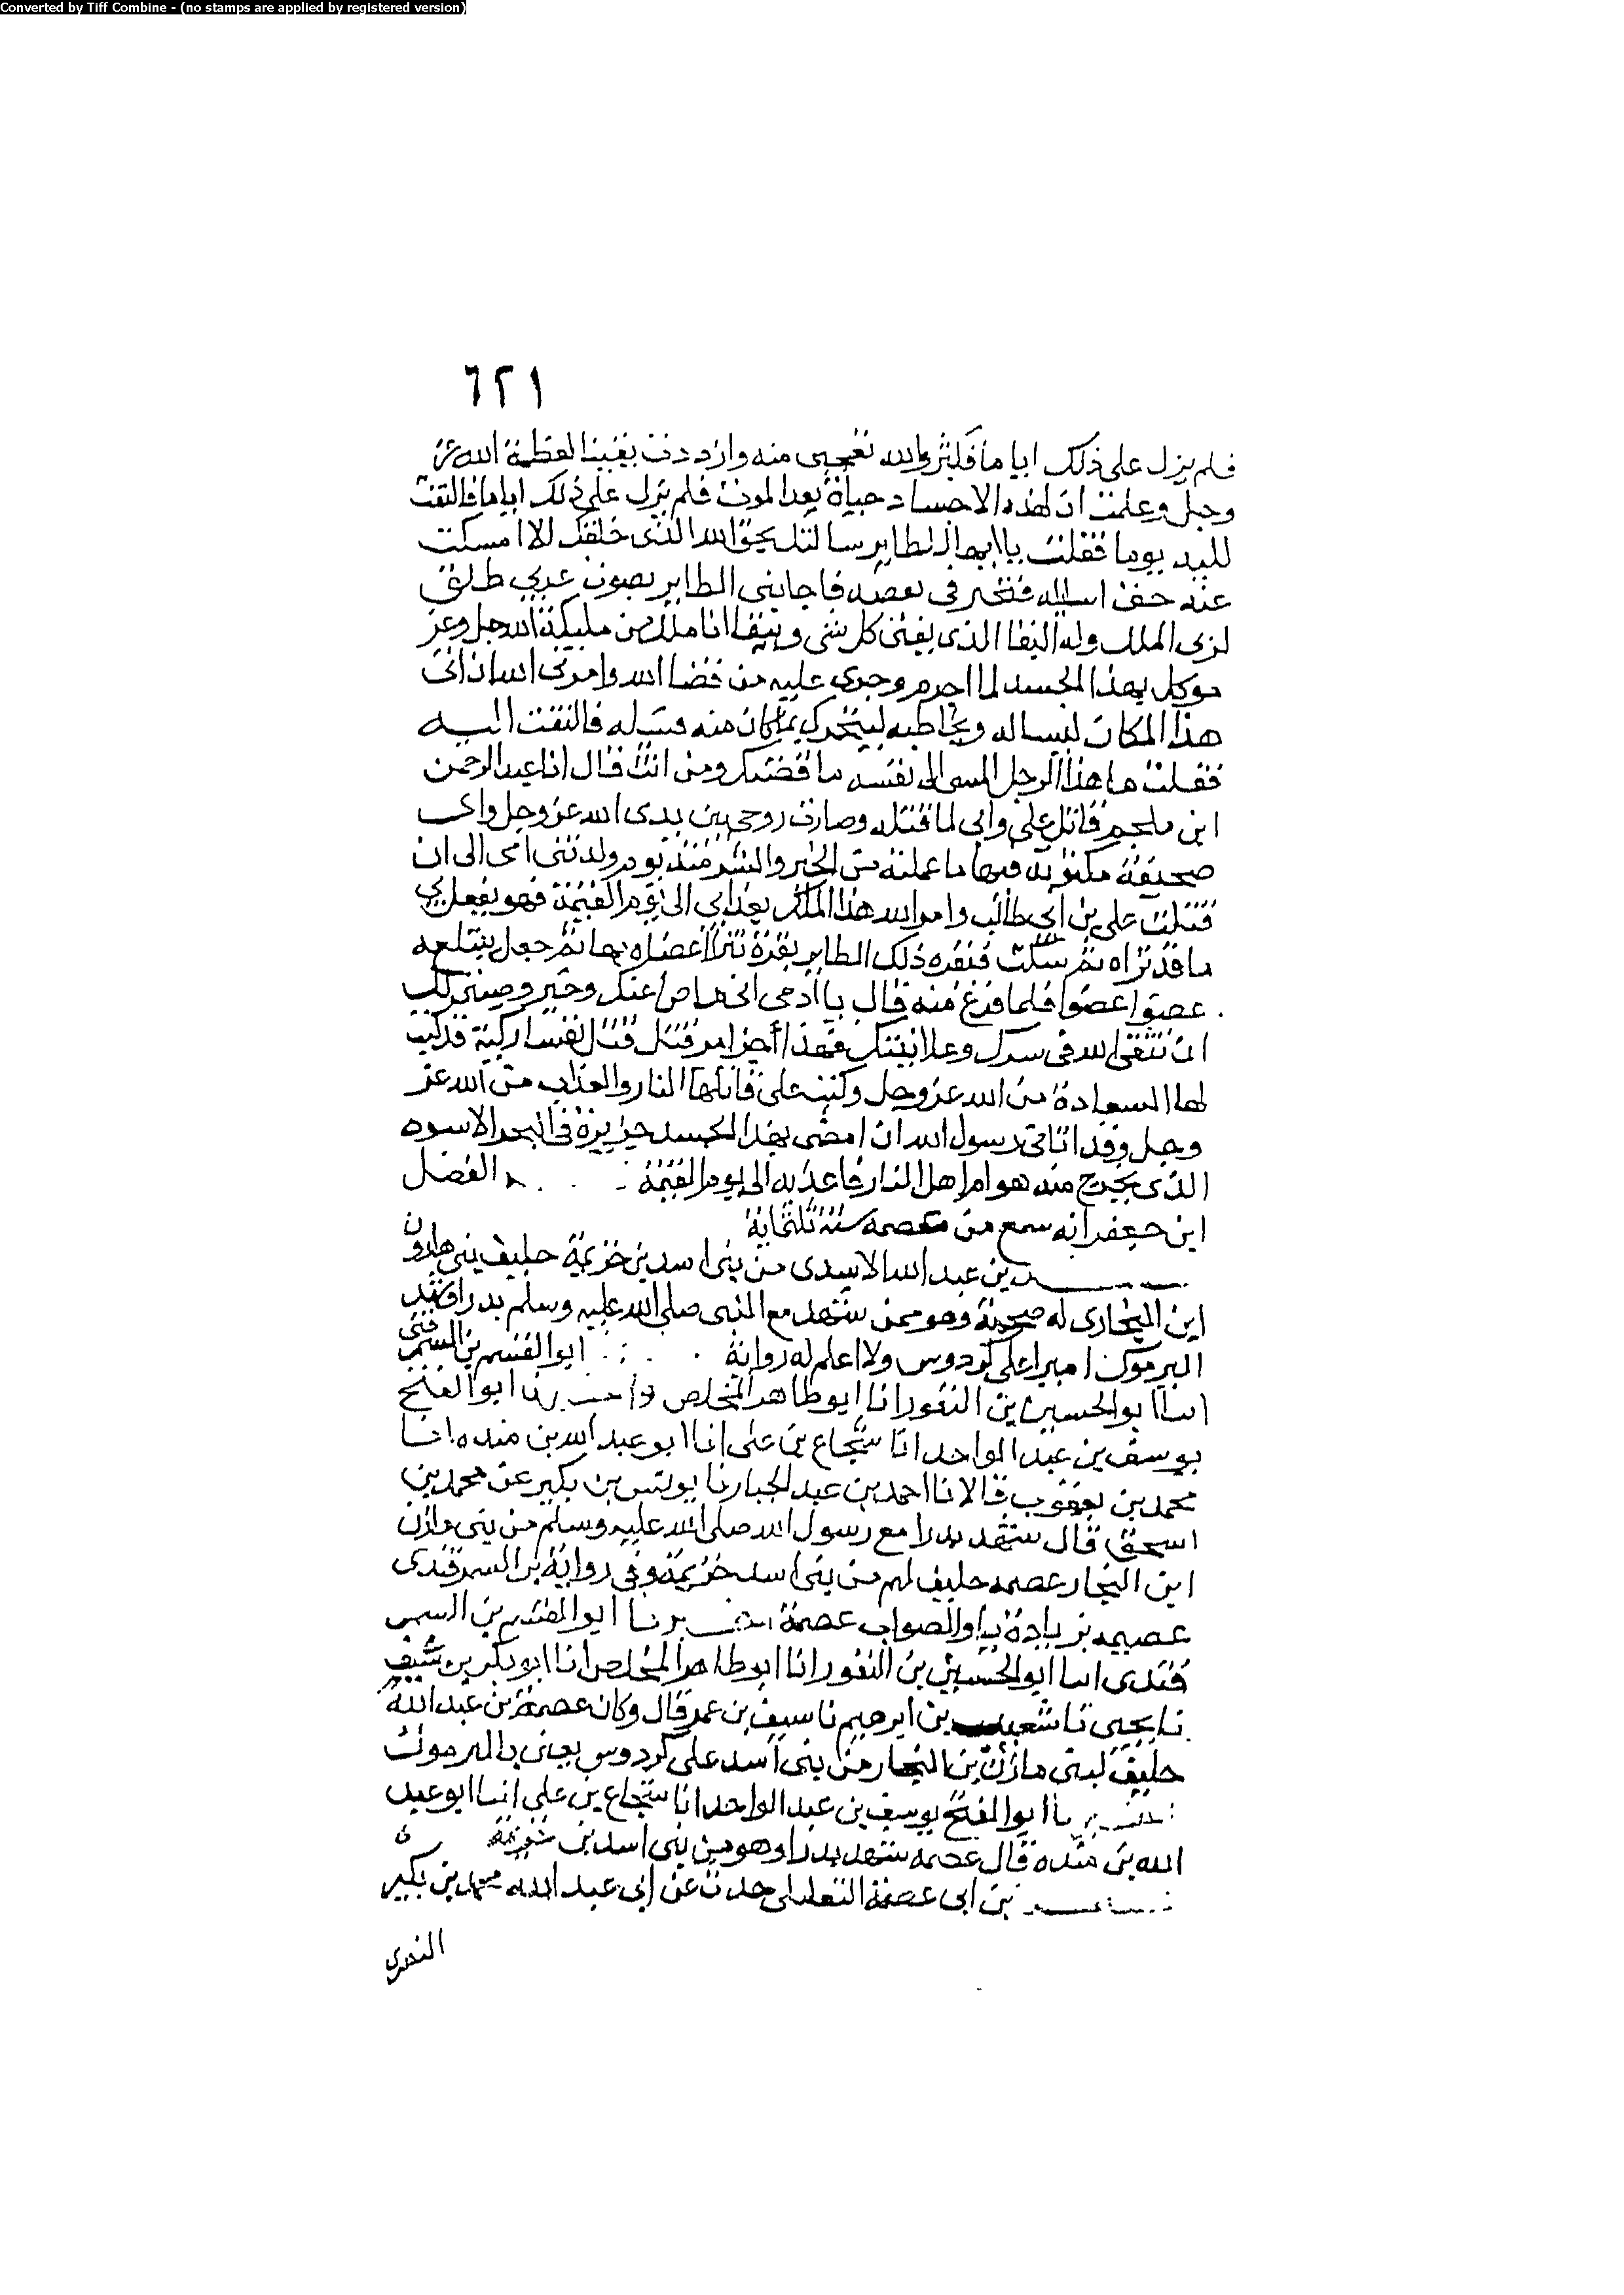 Converted by Tiff Combine - (no stamps are applied by registered version)
٦٢١
فلم يزل على ذلك اياما فكثر والله تعجبى منه وازددت يقينا لعظمة الله عز
وجل وعلمت ان لهذه الاجساد حياة بعد الموت فلم يزل على ذلك اياما فالتفت
اليه يوما فقلت يا ايها الطاير سالتك بحق الله الذى خلقك الا امسكت
عنه حتى اساله فتخبر فى بقصته فاجابنى الطاير بصوت عربى طلق
لربى الملك وله البقا الذى يفنى كل شى ويبقا انا ملك من مليكة الله جل وعز
موكل بهذا الجسد لما اجرم وجرى عليه من قضا الله وامرنى الله ان اتى
هذا المكان ليساله ويخاطبه ليتخبرك بما كان منه فسله فالتفت اليه
فقلت ما هذا الرجل المسى الى نفسه ما قصتك ومن انت قال انا عبد الرحمن
ابن ملجم قاتل على وانى لما قتلته وصارت روحى بين يدى الله عز وجل
صحيفة مكتوبة فيها ما عملته من الخير والشر منذ يوم ولدتنى امى الى ان
قتلت على بن ابى طالب وامر الله هذا الملك بعذابى الى يوم القيمة فهو يفعل بى
ما قد تراه ثم سكت فنقره ذلك الطاير نقرة نثر اعضاه بها ثم جعل يبتلعه
عضوا عضوا فلما فرغ منه قال يا ادمى انى ماض عنك وخير وصيتى لك
ان تتقى الله فى سرك وعلانيتك فهذا جزا من قتل نفسا زكية قد كتب
لها السعادة من الله عز وجل وكتب على قاتلها النار والعذاب من الله عز
وجل وقد اتانى رسول الله ان امضى بهذا الجسد جزيرة فى البحر الاسود
الذى يخرج منه هوام اهل النار فاعذبه الى يوم القيمة الفضل
ابن جعفر انه سمع من عصمة سنة ثلثماية
بن عبد الله الاسدى من بنى اسد بن خزيمة حليف بنى مازن
ابن النجار له صحبة وهو ممن شهد مع النبى صلى الله عليه وسلم بدرا وشهد
اليرموك اميرا على كردوس ولا اعلم له رواية ابو القسم بن السمرقندى
انا ابو الحسين بن النقور انا ابو طاهر المخلص واخبرنا ابو الفتح
يوسف بن عبد الواحد انا شجاع بن على انا ابو عبد الله بن منده انا
محمد بن يعقوب قالا نا احمد بن عبد الجبار نا يونس بن بكير عن محمد بن
اسحق قال شهد بدرا مع رسول الله صلى الله عليه وسلم من بنى مازن
ابن النجار عصمه حليف لهم من بنى اسد خزيمة وفى رواية بن السمرقندى
عصيمه بزيادة يا والصواب عصمة اخبرنا ابو القسم بن السمر
قندى انا ابو الحسين بن النقور انا ابو طاهر المخلص انا ابو بكر بن سيف
نا يحيى نا شعيب بن ابرهيم نا سيف بن عمر قال وكان عصمة بن عبد الله
حليف لبنى مازن بن النجار من بنى اسد على كردوس يعنى باليرموك
اخبرنا ابو الفتح يوسف بن عبد الواحد انا شجاع بن على انا ابو عبد
الله بن منده قال عصمه شهد بدرا وهو من بنى اسد بن خزيمة
بن ابى عصمة حدث عن ابى عبد الله محمد بن بكير